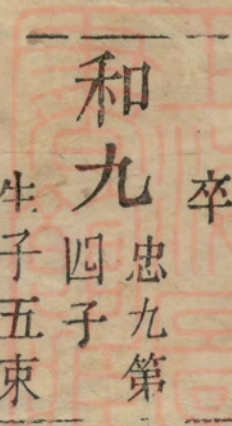 卒
和九
忠九第
四子
生子五束